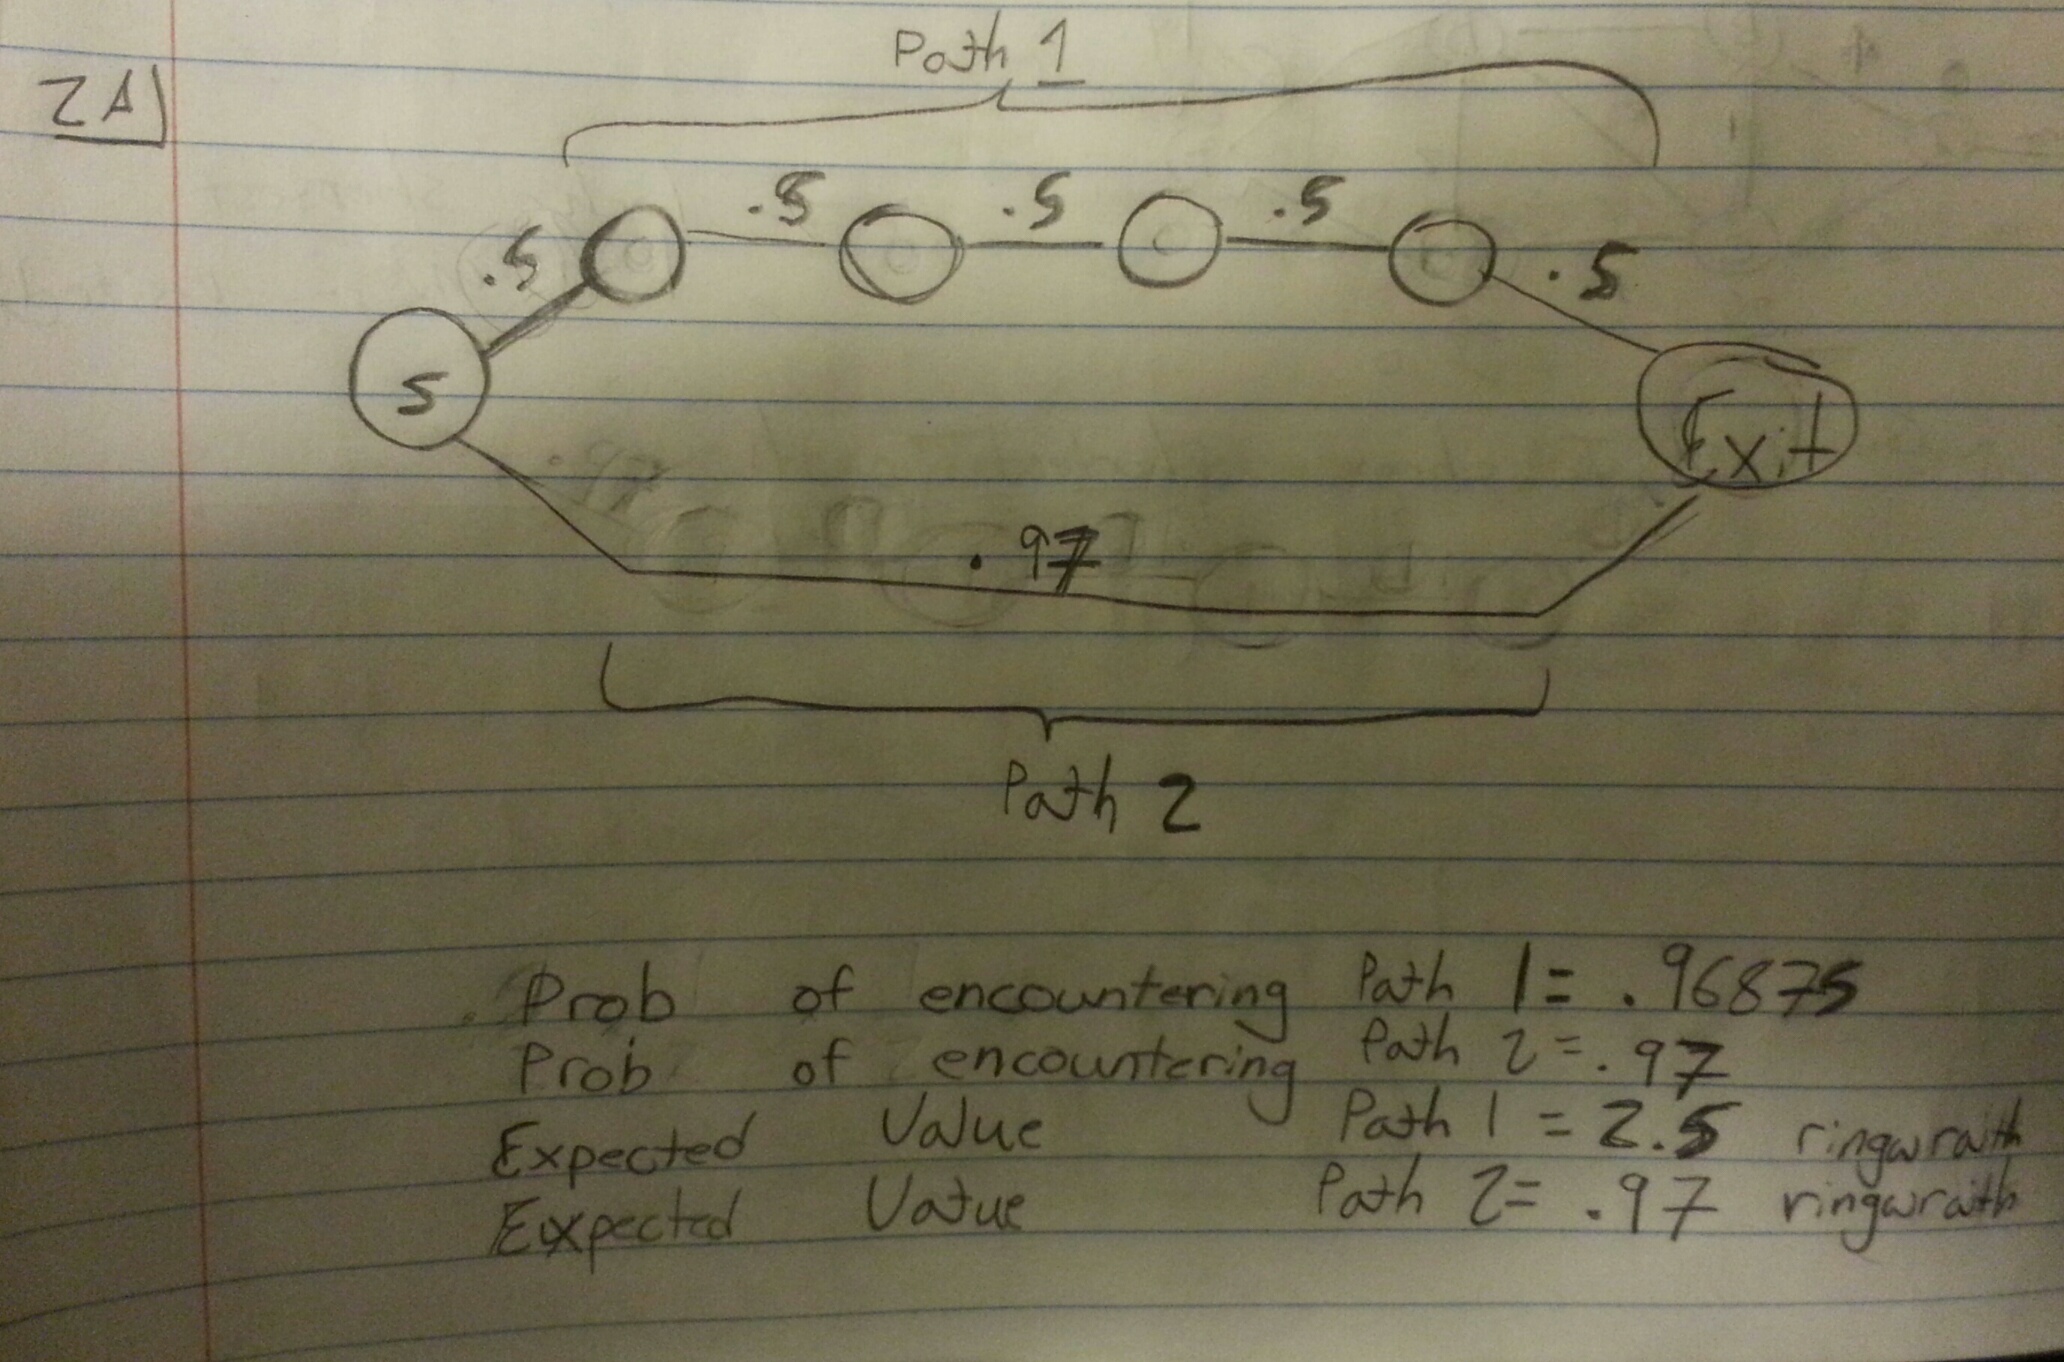 Path 1
2A)
.5 .5 .5
.5 .5
S
Exit
.97
Path 2
Prob of encountering Path 1 = .96875
Prob of encountering Path 2 = .97
Expected Value Path 1 = 2.5 ringwraith
Expected Value Path 2 = .97 ringwraith